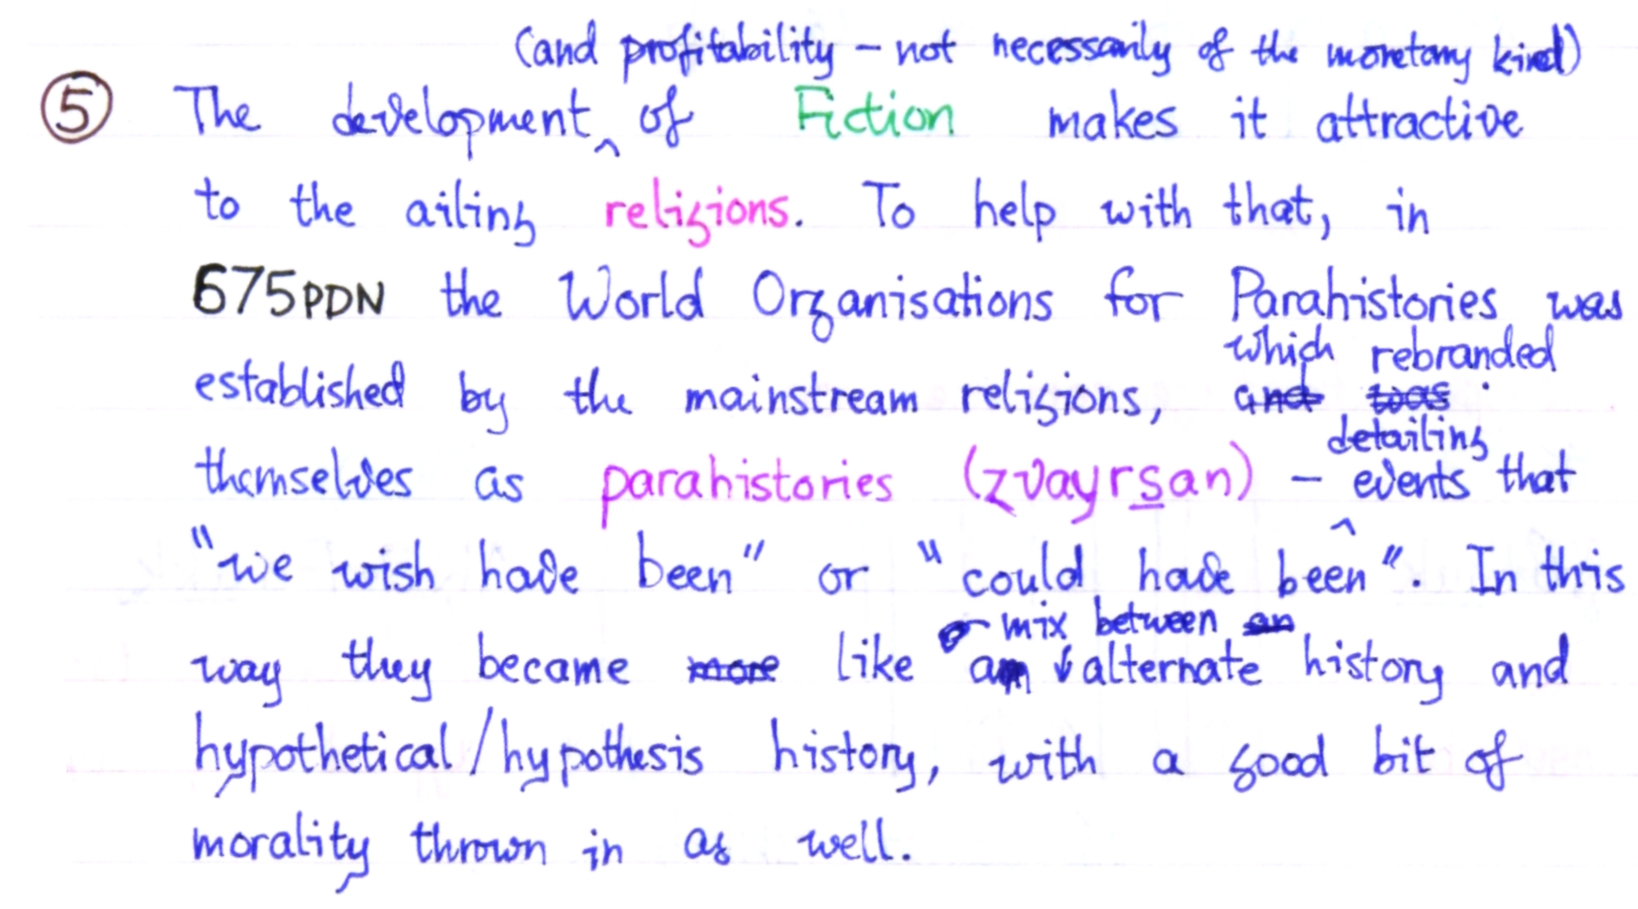 (and profitability – not necessarily of the monetary kind)
⑤ The development ^ of Fiction makes it attractive
to the ailing religions. To help with that, in
675PDN the World Organisations for Parahistories was
which rebranded
established by the mainstream religions, and was
detailing
themselves as parahistories (zvayrsan) – events that
^
"we wish have been" or "could have been". In this
mix between an
way they became more like alternate history and
hypothetical/hypothesis history, with a good bit of
morality thrown in as well.